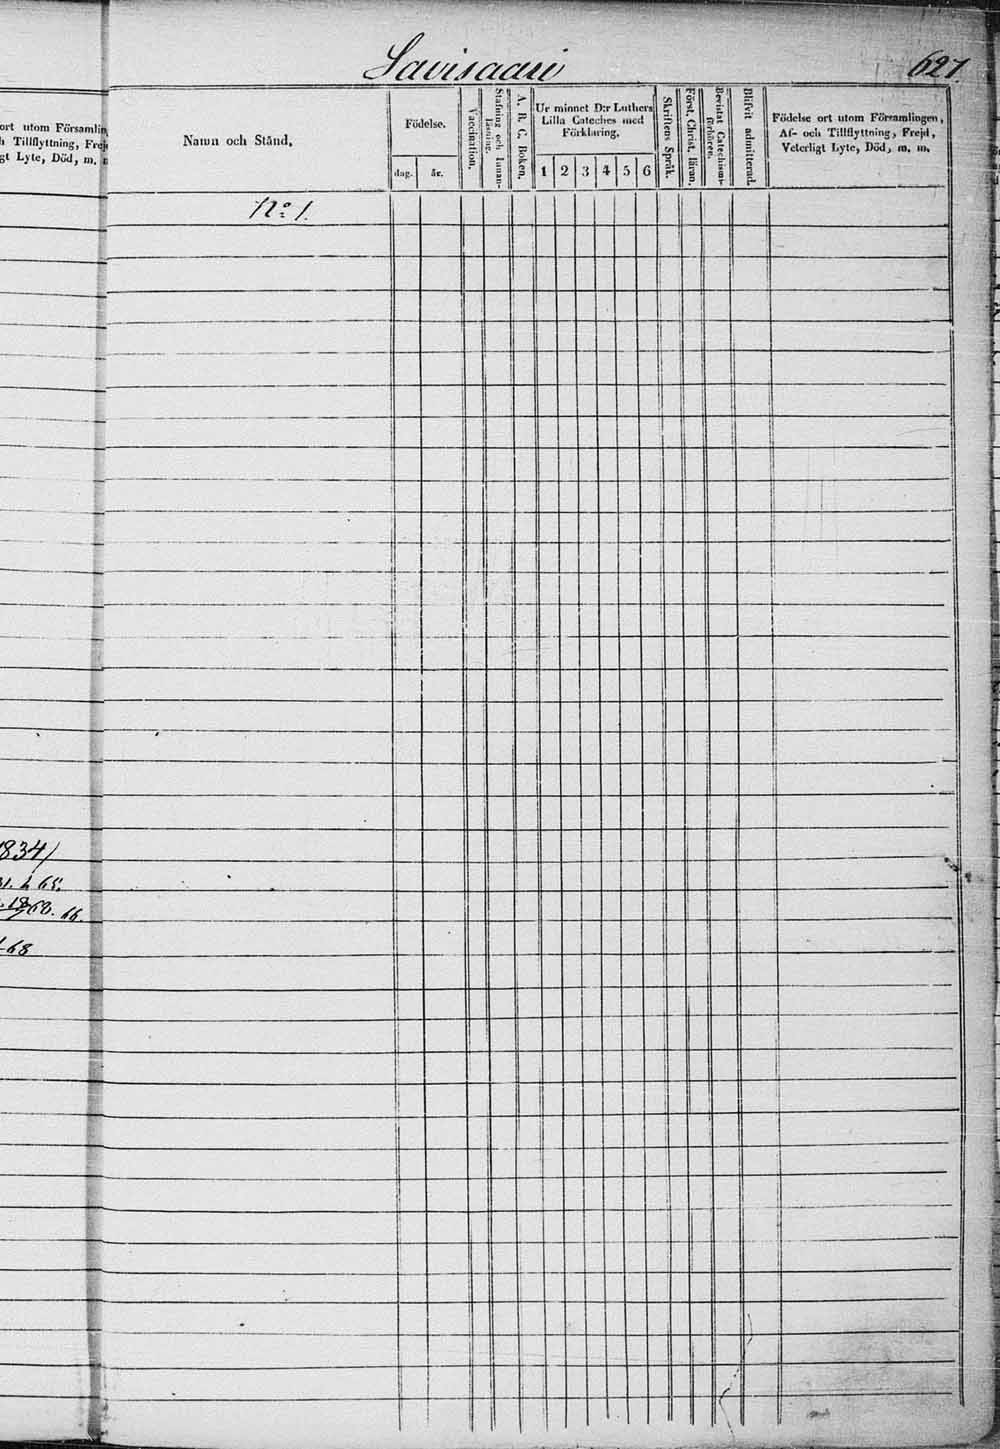 Savisaari
627
ort utom Församlin
Tillflyttning, Frej
gt Lyte, Död, m.
Namn och Stånd.
Födelse.
dag.
år.
Vaccination.
Stafning och Innan-
läsning.
A. B. C. Boken.
Ur minnet D:r Luthers
Lilla Cateches med
Förklaring.
1 2 3 4 5 6
Skriftens Språk.
Först. Christ. läran.
Bevistat Catechismi-
förhören.
Blifvit admitterad.
Födelse ort utom Församlingen,
Af- och Tillflyttning, Frejd,
Veterligt Lyte, Död, m. m.
No 1.
1834)
68